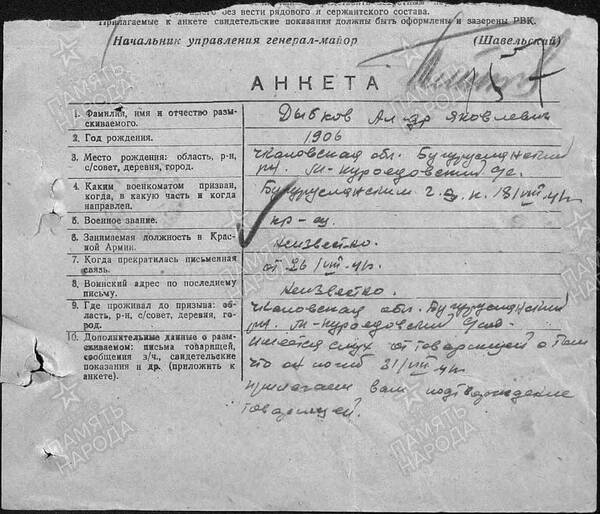 щего без вести рядового и сержантского состава.
Прилагаемые к анкете свидетельские показания должны быть оформлены и заверены РВК.
Начальник управления генерал-майор (Шавельский)
АНКЕТА
1. Фамилия, имя и отчество разыскиваемого.
Дыбков Ал-др Яковлевич
2. Год рождения.
1906
3. Место рождения: область, р-н, с/совет, деревня, город.
Чкаловская обл. Бугурусланский
рн. М-Куроедовский с/с.
4. Каким военкоматом призван, когда, в какую часть и когда направлен.
Бугурусланским 18/VIII 41г.
5. Военное звание.
кр-ец
6. Занимаемая должность в Красной Армии.
неизвестно.
7. Когда прекратилась письменная связь.
от 26/VIII-41г.
8. Воинский адрес по последнему письму.
неизвестно.
9. Где проживал до призыва: область, р-н, с/совет, деревня, город.
Чкаловская обл. Бугурусланский
рн. М-Куроедовский
10. Дополнительные данные о разыскиваемом: письма товарищей, сообщения з/ч., свидетельские показания и др. (приложить к анкете).
имеется слух от товарищей о том
что он погиб 31/VIII-41г
прилагаем вам подтверждение
товарищей.
ПАМЯТЬ НАРОДА